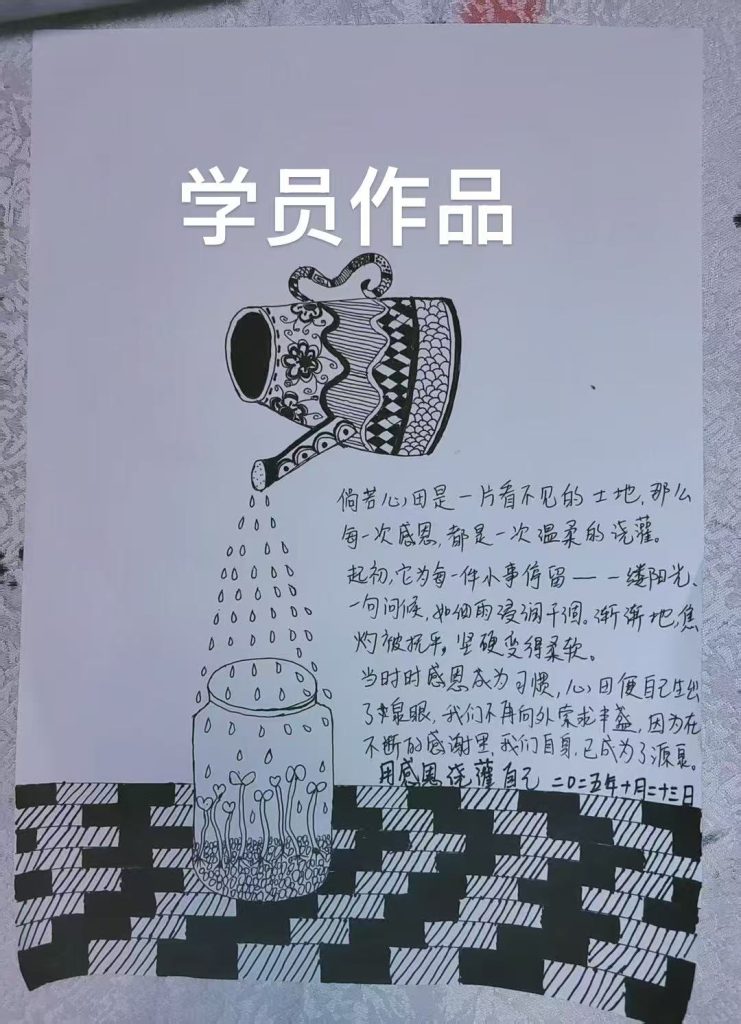 学员作品
倘若心田是一片看不见的土地，那么
每一次感恩，都是一次温柔的浇灌。
起初，它为每一件小事停留——一缕阳光、
一句问候，如细雨浸润干涸。渐渐地，焦
灼被抚平，坚硬变得柔软。
当时时感恩成为习惯，心田便自己生出
了泉眼，我们不再向外索求丰盈，因为在
不断的感谢里，我们自身，已成为了源泉。
用感恩浇灌自己 二〇二五年十月二十三日